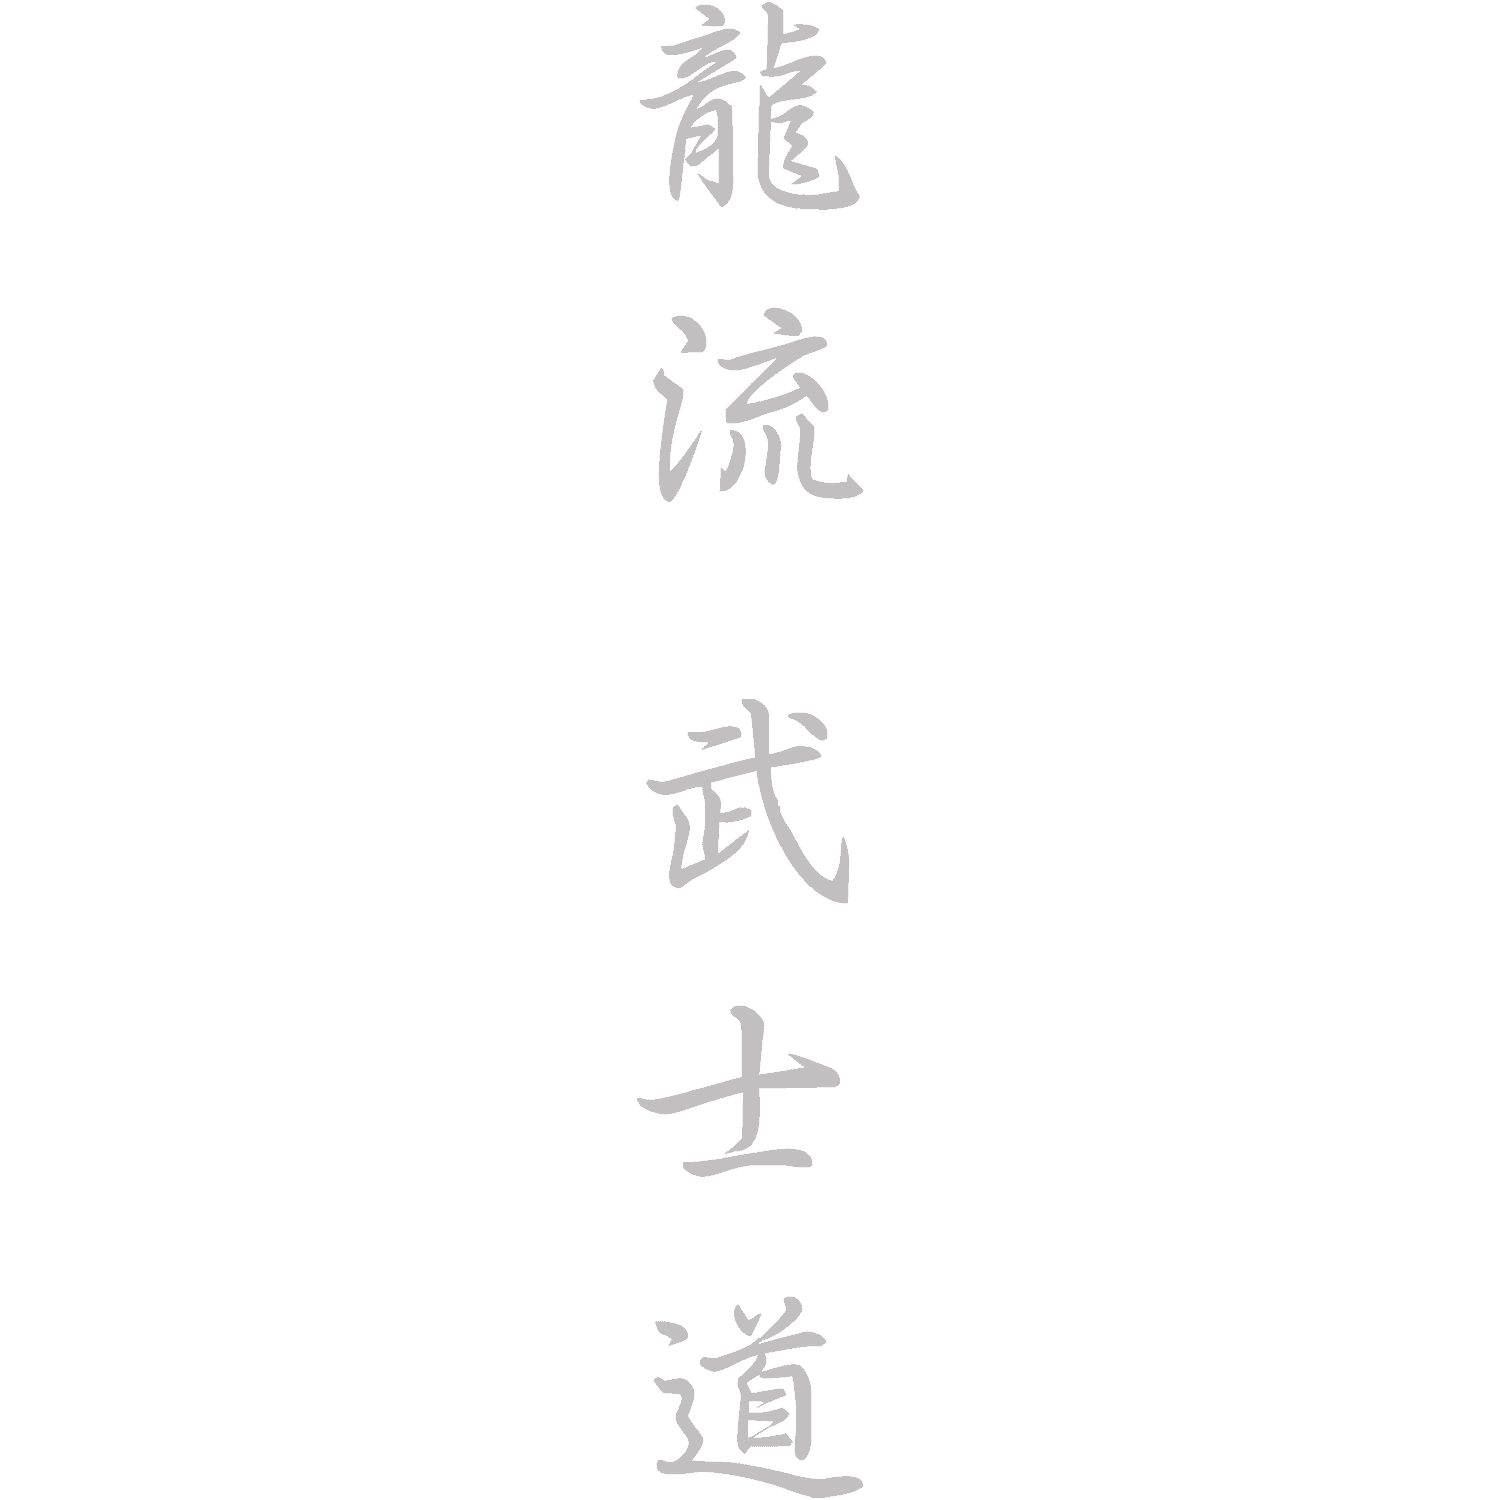 龍流 武士道